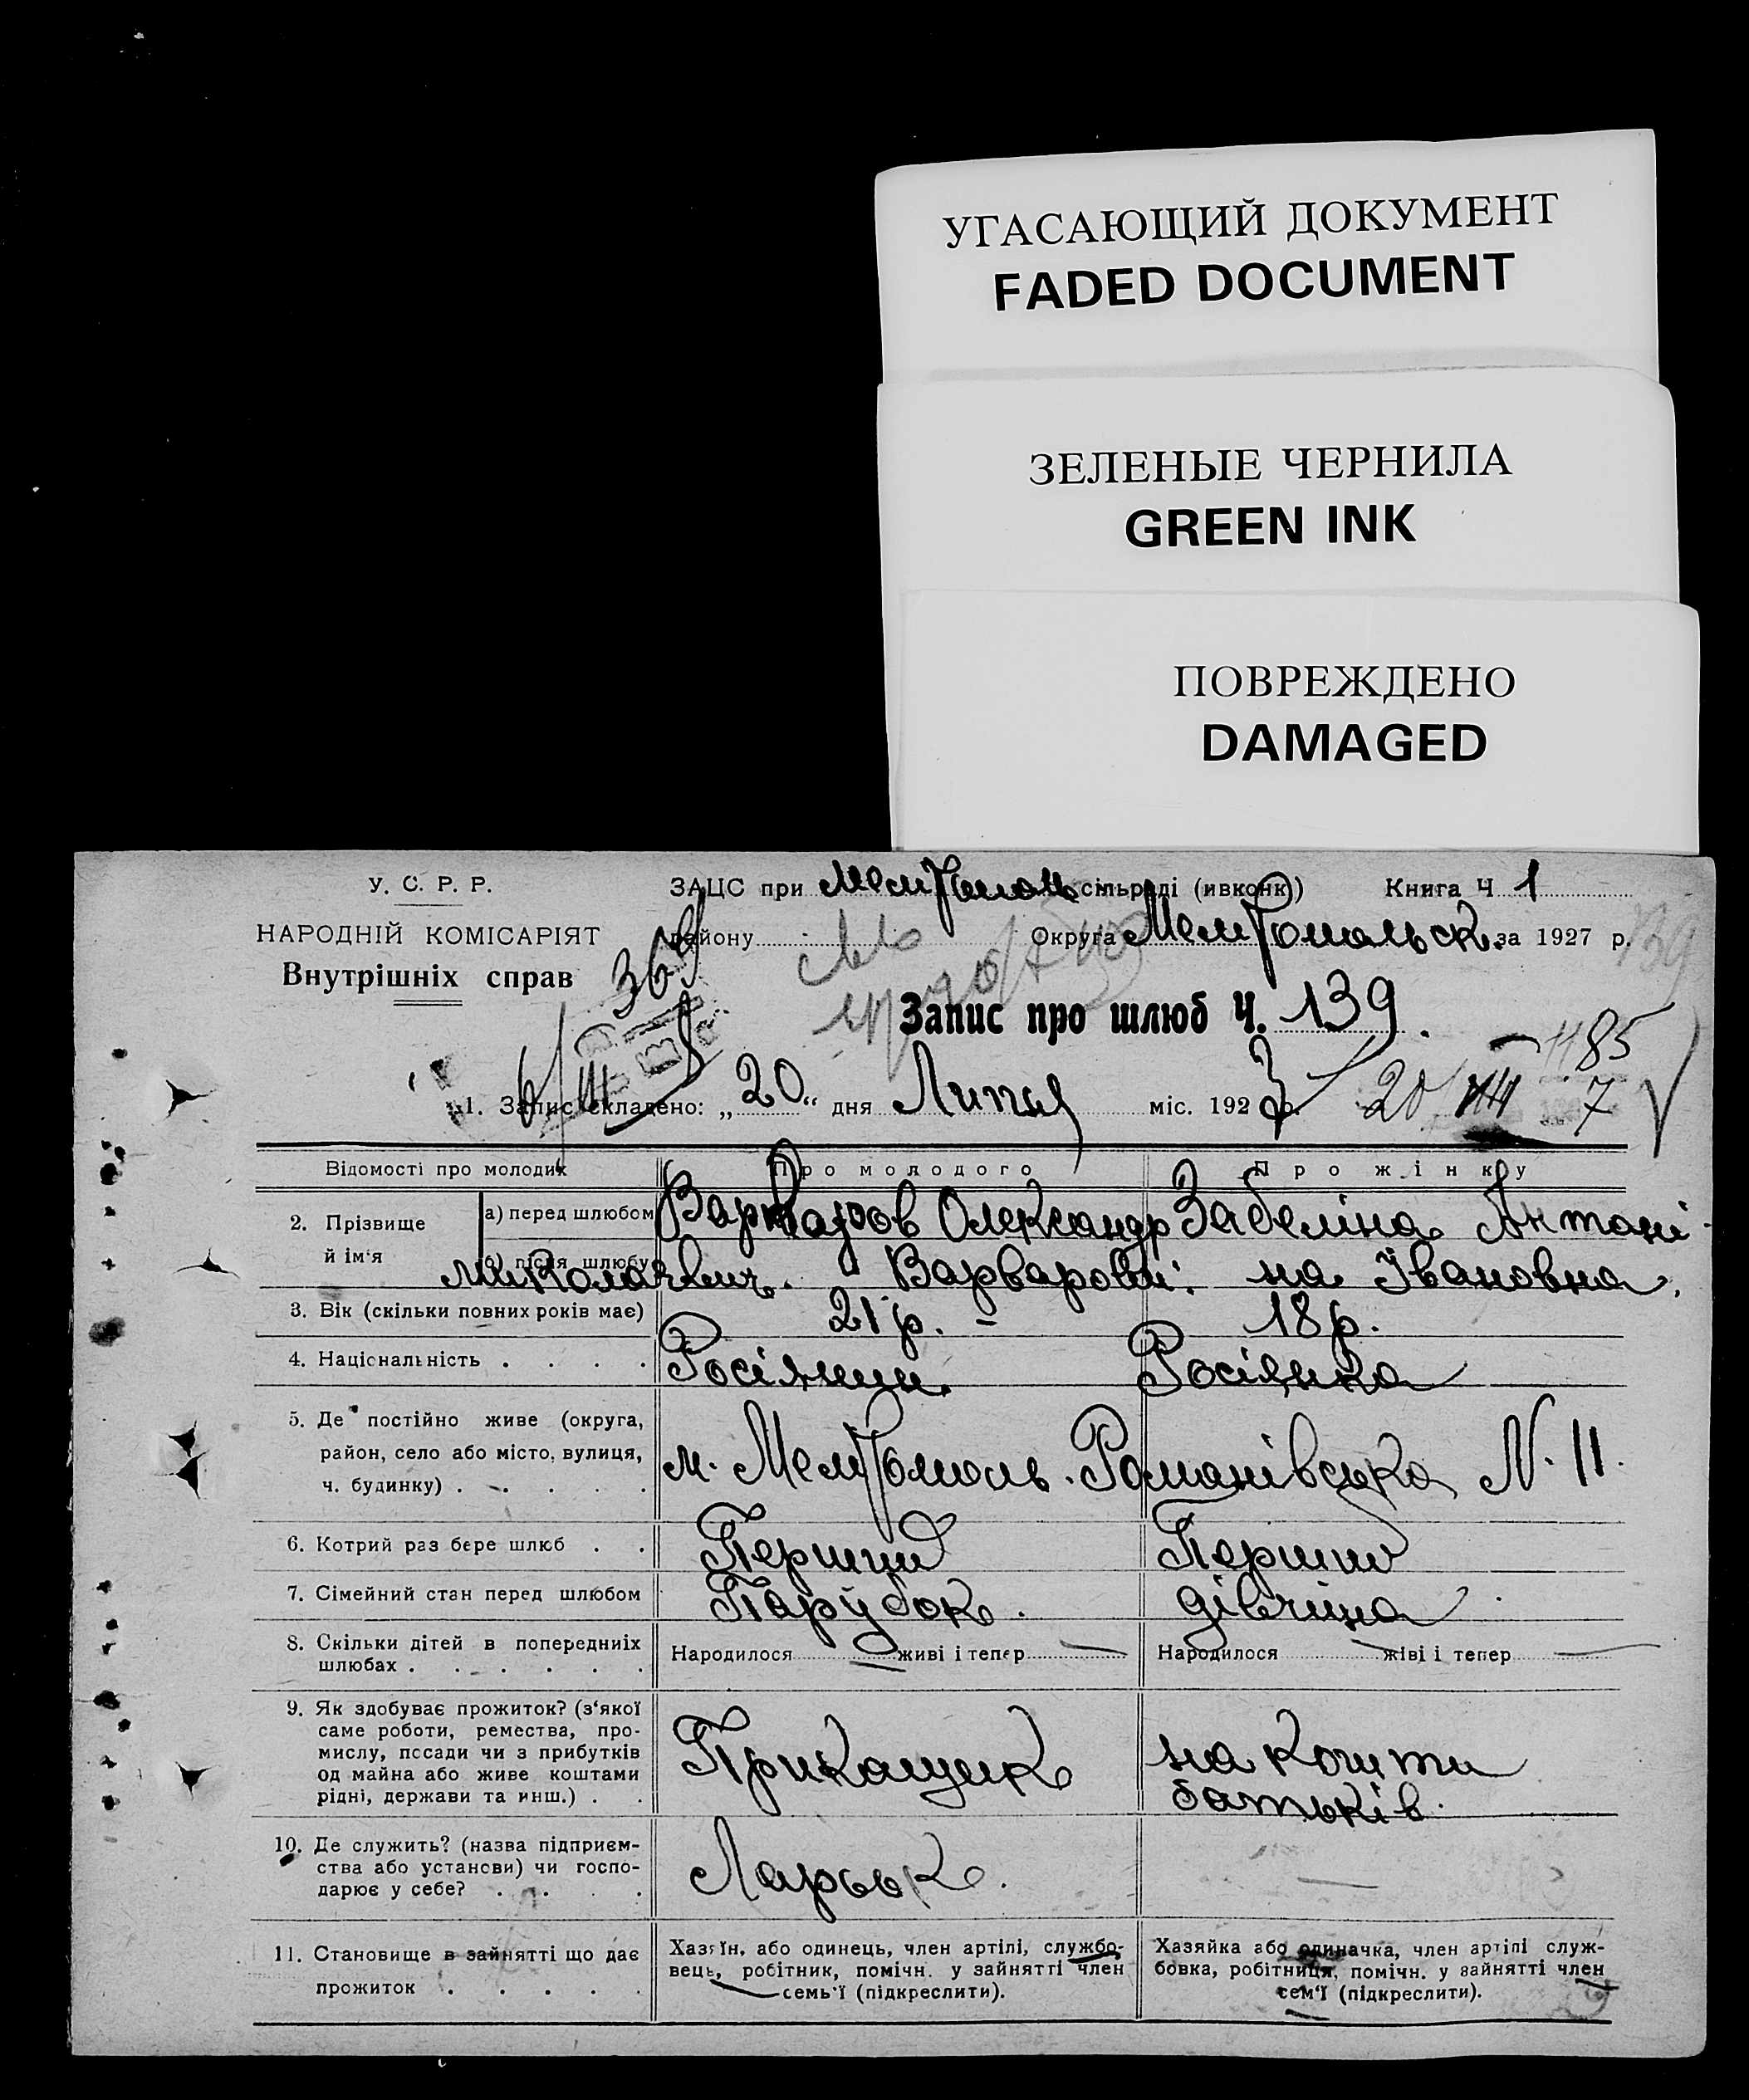 УГАСАЮЩИЙ ДОКУМЕНТ
FADED DOCUMENT
ЗЕЛЕНЫЕ ЧЕРНИЛА
GREEN INK
ПОВРЕЖДЕНО
DAMAGED
У. С. Р. Р.
НАРОДНІЙ КОМІСАРІЯТ
Внутрішніх справ
369
ЗАЦС при Мелітополь сільраді (ивконк) Книга Ч 1
району Округа Мелітопольск. за 1927 р.
139
Запис про шлюб Ч. 139.
1185
1. Запис складено: „20“ дня Липня міс. 1927 р. 20/VII 7
Відомості про молодих Про молодого Про жінку
2. Прізвище й ім'я
а) перед шлюбом Варваров Олександр Забеліна Антоні-
б) після шлюбу Миколаевич. Варварови: на Івановна.
3. Вік (скільки повних років має) 21 р. – 18 р.
4. Національність . . . . Росіянин Росіянка
5. Де постійно живе (округа, район, село або місто, вулиця, ч. будинку) . . . . .
м. Мелітополь. Романівська N. 11.
6. Котрий раз бере шлюб . . Перший Перший
7. Сімейний стан перед шлюбом Парубок. дівчина
8. Скільки дітей в попередниіх шлюбах . . . . . .
Народилося — живі і тепер — Народилося — живі і тепер —
9. Як здобуває прожиток? (з'якої саме роботи, ремества, промислу, посади чи з прибутків од майна або живе коштами рідні, держави та инш.) . .
Прикащик на кошти
батьків.
10. Де служить? (назва підприємства або установи) чи господарює у себе? . . . .
Ларьок. —
11. Становище в зайнятті що дає прожиток . . . . .
Хазяїн, або одинець, член артілі, службовець, робітник, помічн. у зайнятті член семь'ї (підкреслити).
Хазяйка або одиначка, член артілі службовка, робітниця, помічн. у зайнятті член сем'ї (підкреслити).